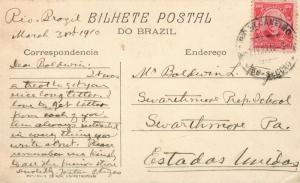 Rio, Brazil
March 3rd 1910
BILHETE POSTAL
DO BRAZIL
Correspondencia
Endereço
Dear Baldwin,
It was
a treat to get your
nice long letter. I
love to get letters
from each of you
am always interested
in everything you
write about. Please
remember me kindly
to all the
Mr Baldwin L.
Swarthmore Prep. School
Swarthmore Pa.
Estados Unidos
RIO DE JANEIRO